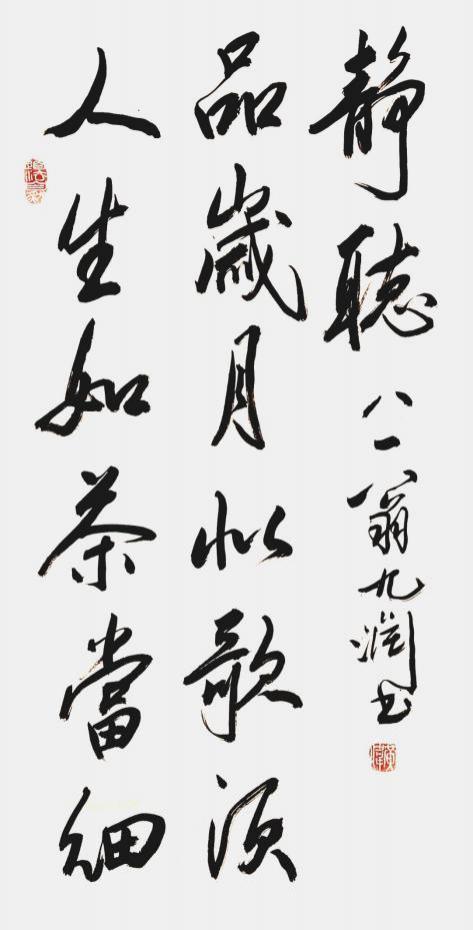 人生如茶當細
品歲月似歌須
靜聽
八一翁九润书